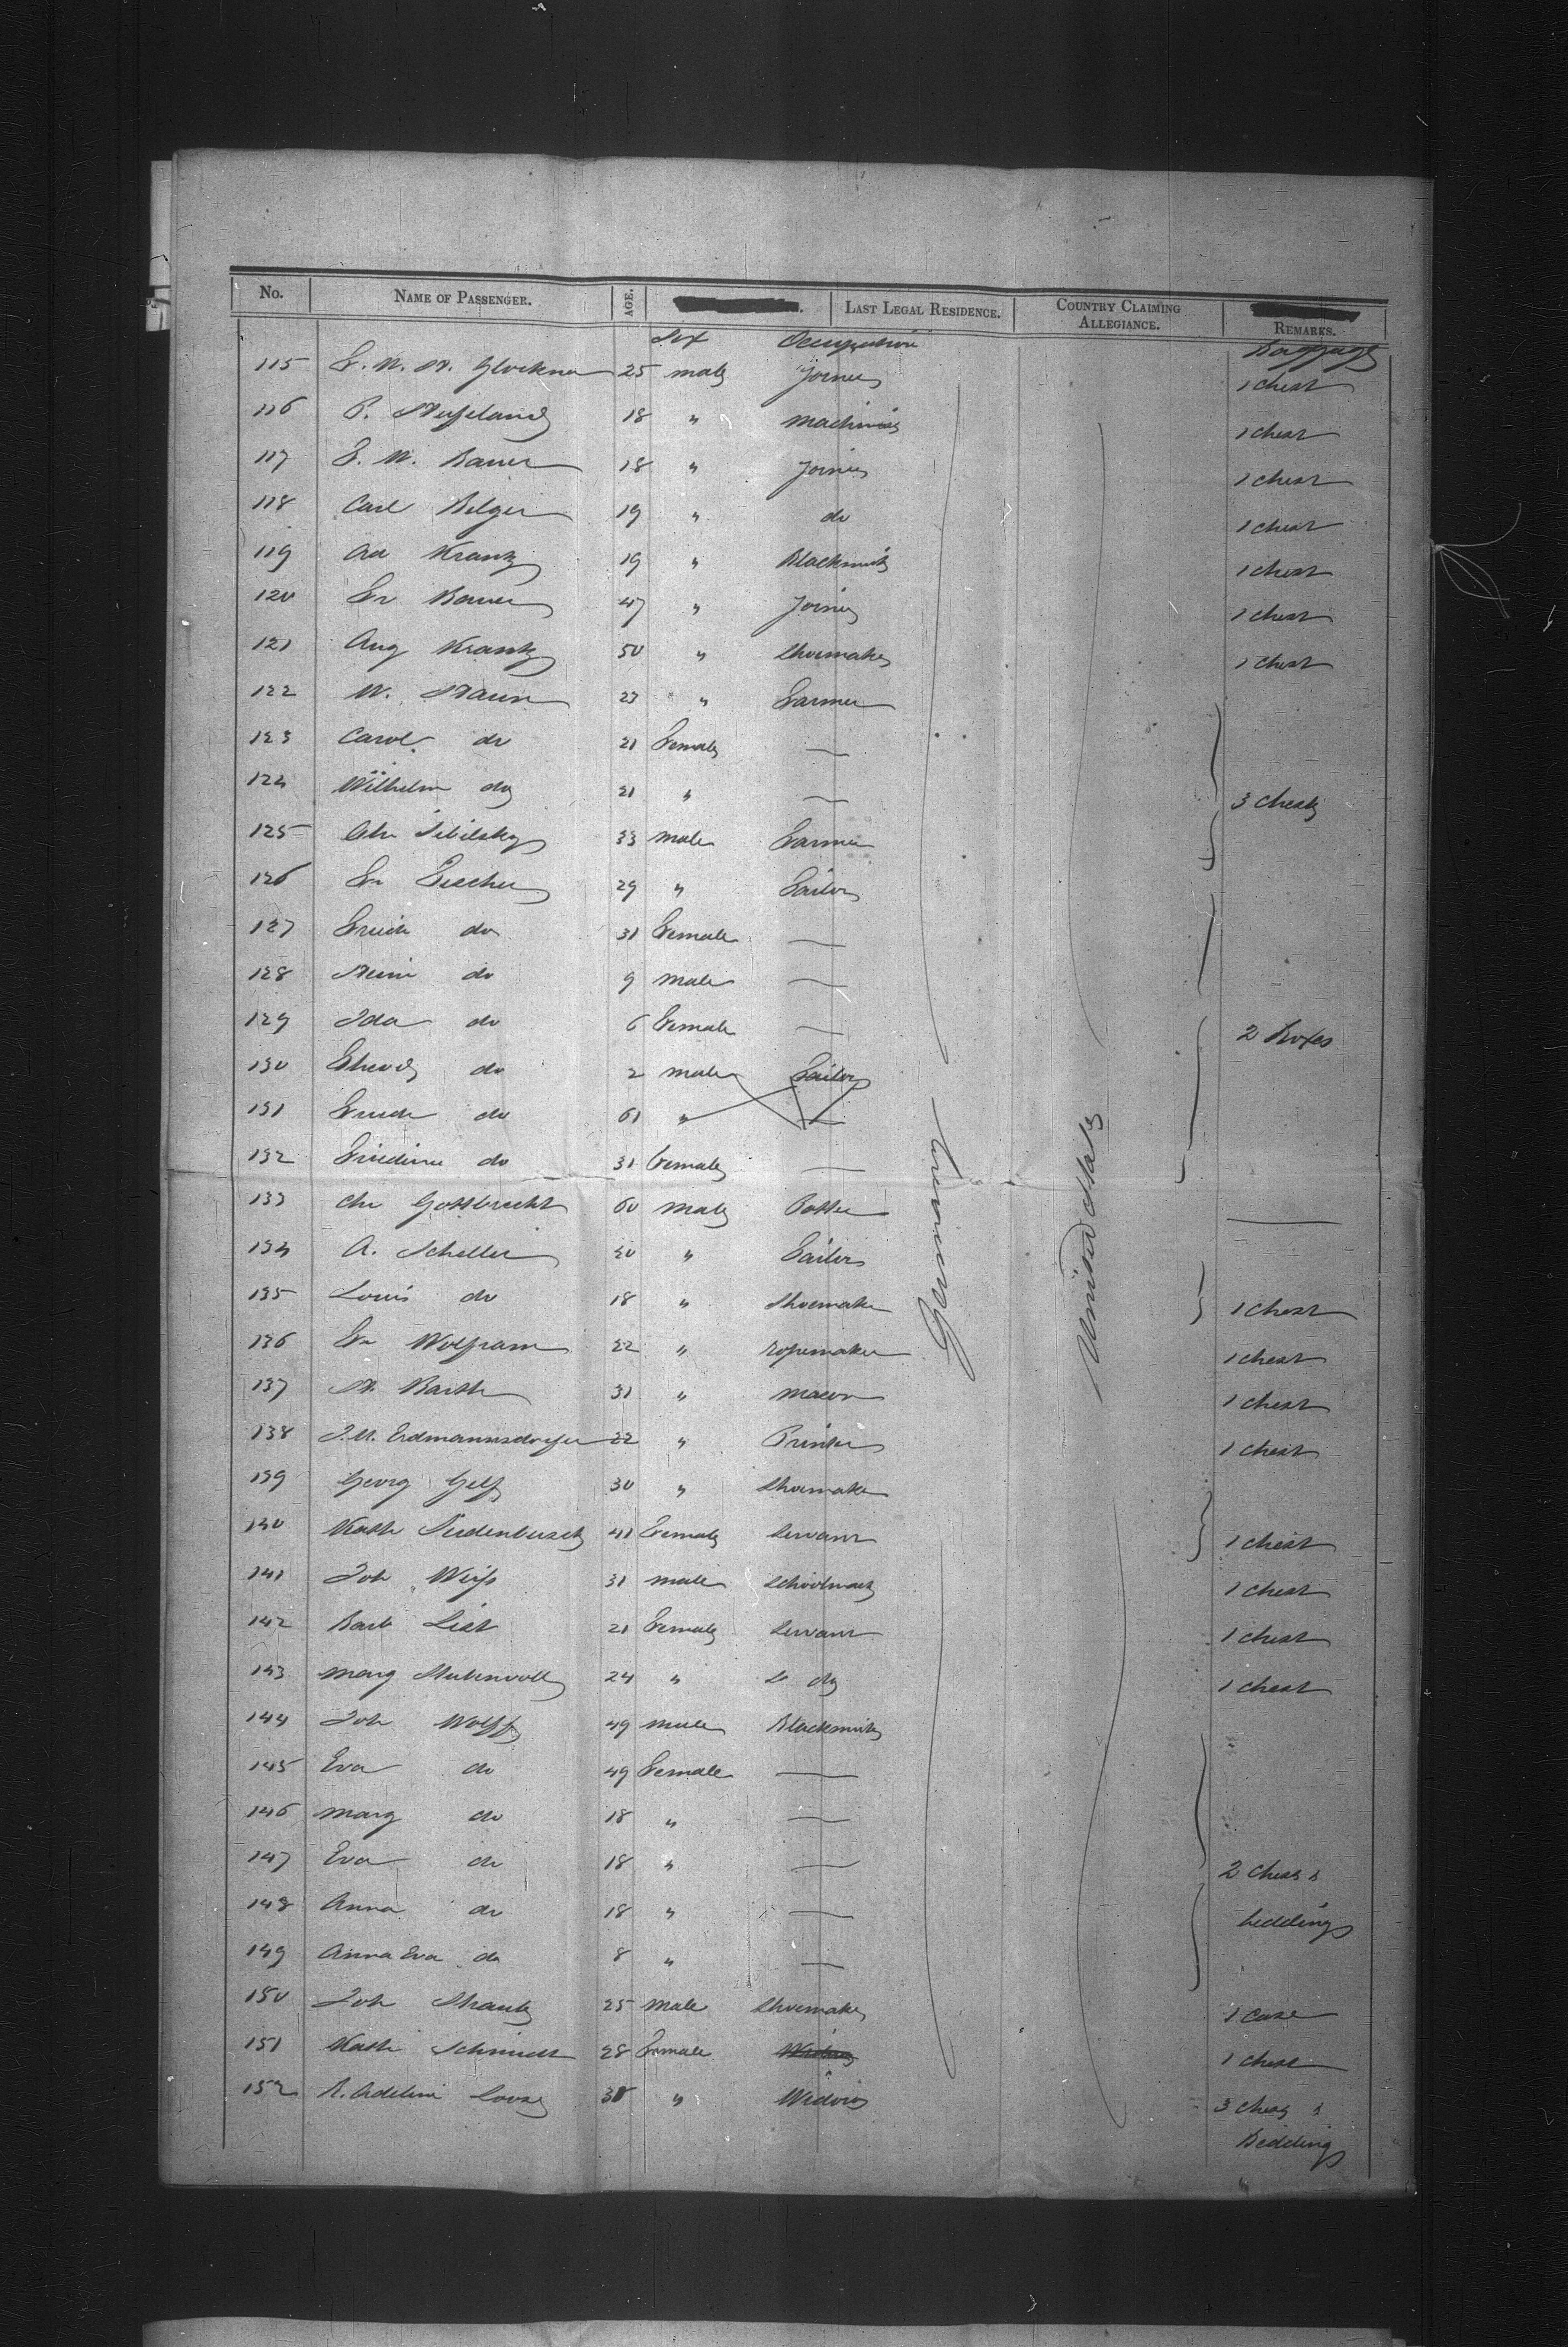 No. NAME OF PASSENGER. AGE. LAST LEGAL RESIDENCE. COUNTRY CLAIMING ALLEGIANCE. REMARKS.
Sex Occupation Baggage
115 F. W. H. Glockner 25 male Joiner 1 chest
116 P. 18 " machinist 1 chest
117 E. W. Bauer 18 " Joiner 1 chest
118 Carl Bilger 19 " do 1 chest
119 Ad Krantz 19 " Blacksmith 1 chest
120 Fr Bauer 47 " Joiner 1 chest
121 Aug Krantz 50 " Shoemaker 1 chest
122 W. 23 " Farmer
123 Carol. do 21 Female —
124 Wilhelm do 21 " — 3 chests
125 Chr 33 male Farmer
126 Fr Fischer 29 " Tailor
127 do 31 Female —
128 do 9 male —
129 Ida do 6 Female — 2 Boxes
130 do 2 male Tailor
131 do 61 " —
132 do 31 Female —
133 Chr Gottbrecht 60 male Potter —
134 A. Scheller 20 " Tailor
135 Louis do 18 " Shoemaker 1 chest
136 Fr Wolfram 22 " ropemaker 1 chest
137 H. Barth 31 " mason 1 chest
138 J. M. Erdmannsdorfer 22 " Printer 1 chest
139 Georg 30 " Shoemaker
140 Kath 41 Female Servant 1 chest
141 Joh Weiß 31 male 1 chest
142 Barb List 21 Female Servant 1 chest
143 Marg 24 " do 1 chest
144 Joh Wolff 49 male Blacksmith
145 Eva do 49 Female —
146 Marg do 18 " —
147 Eva do 18 " — 2 chests &
148 Anna do 18 " — bedding
149 Anna Eva do 8 " —
150 Joh 25 male Shoemaker 1 case
151 Kath Schmidt 28 Female 1 chest
152 " Widow 3 chests &
Bedding
Germany
United States